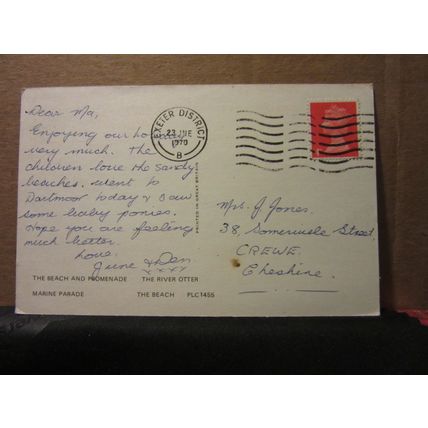 Dear Ma,
Enjoying our holiday
very much. The
children love the sandy
beaches. Went to
Dartmoor today & saw
some baby ponies.
Hope you are feeling
much better.
Love,
June & Den
xxxx
THE BEACH AND PROMENADE THE RIVER OTTER
MARINE PARADE THE BEACH PLC1455
PRINTED IN GREAT BRITAIN
EXETER DISTRICT
23 JNE
1970
B
Mrs. J. Jones,
38, Somerville Street,
CREWE,
Cheshire.